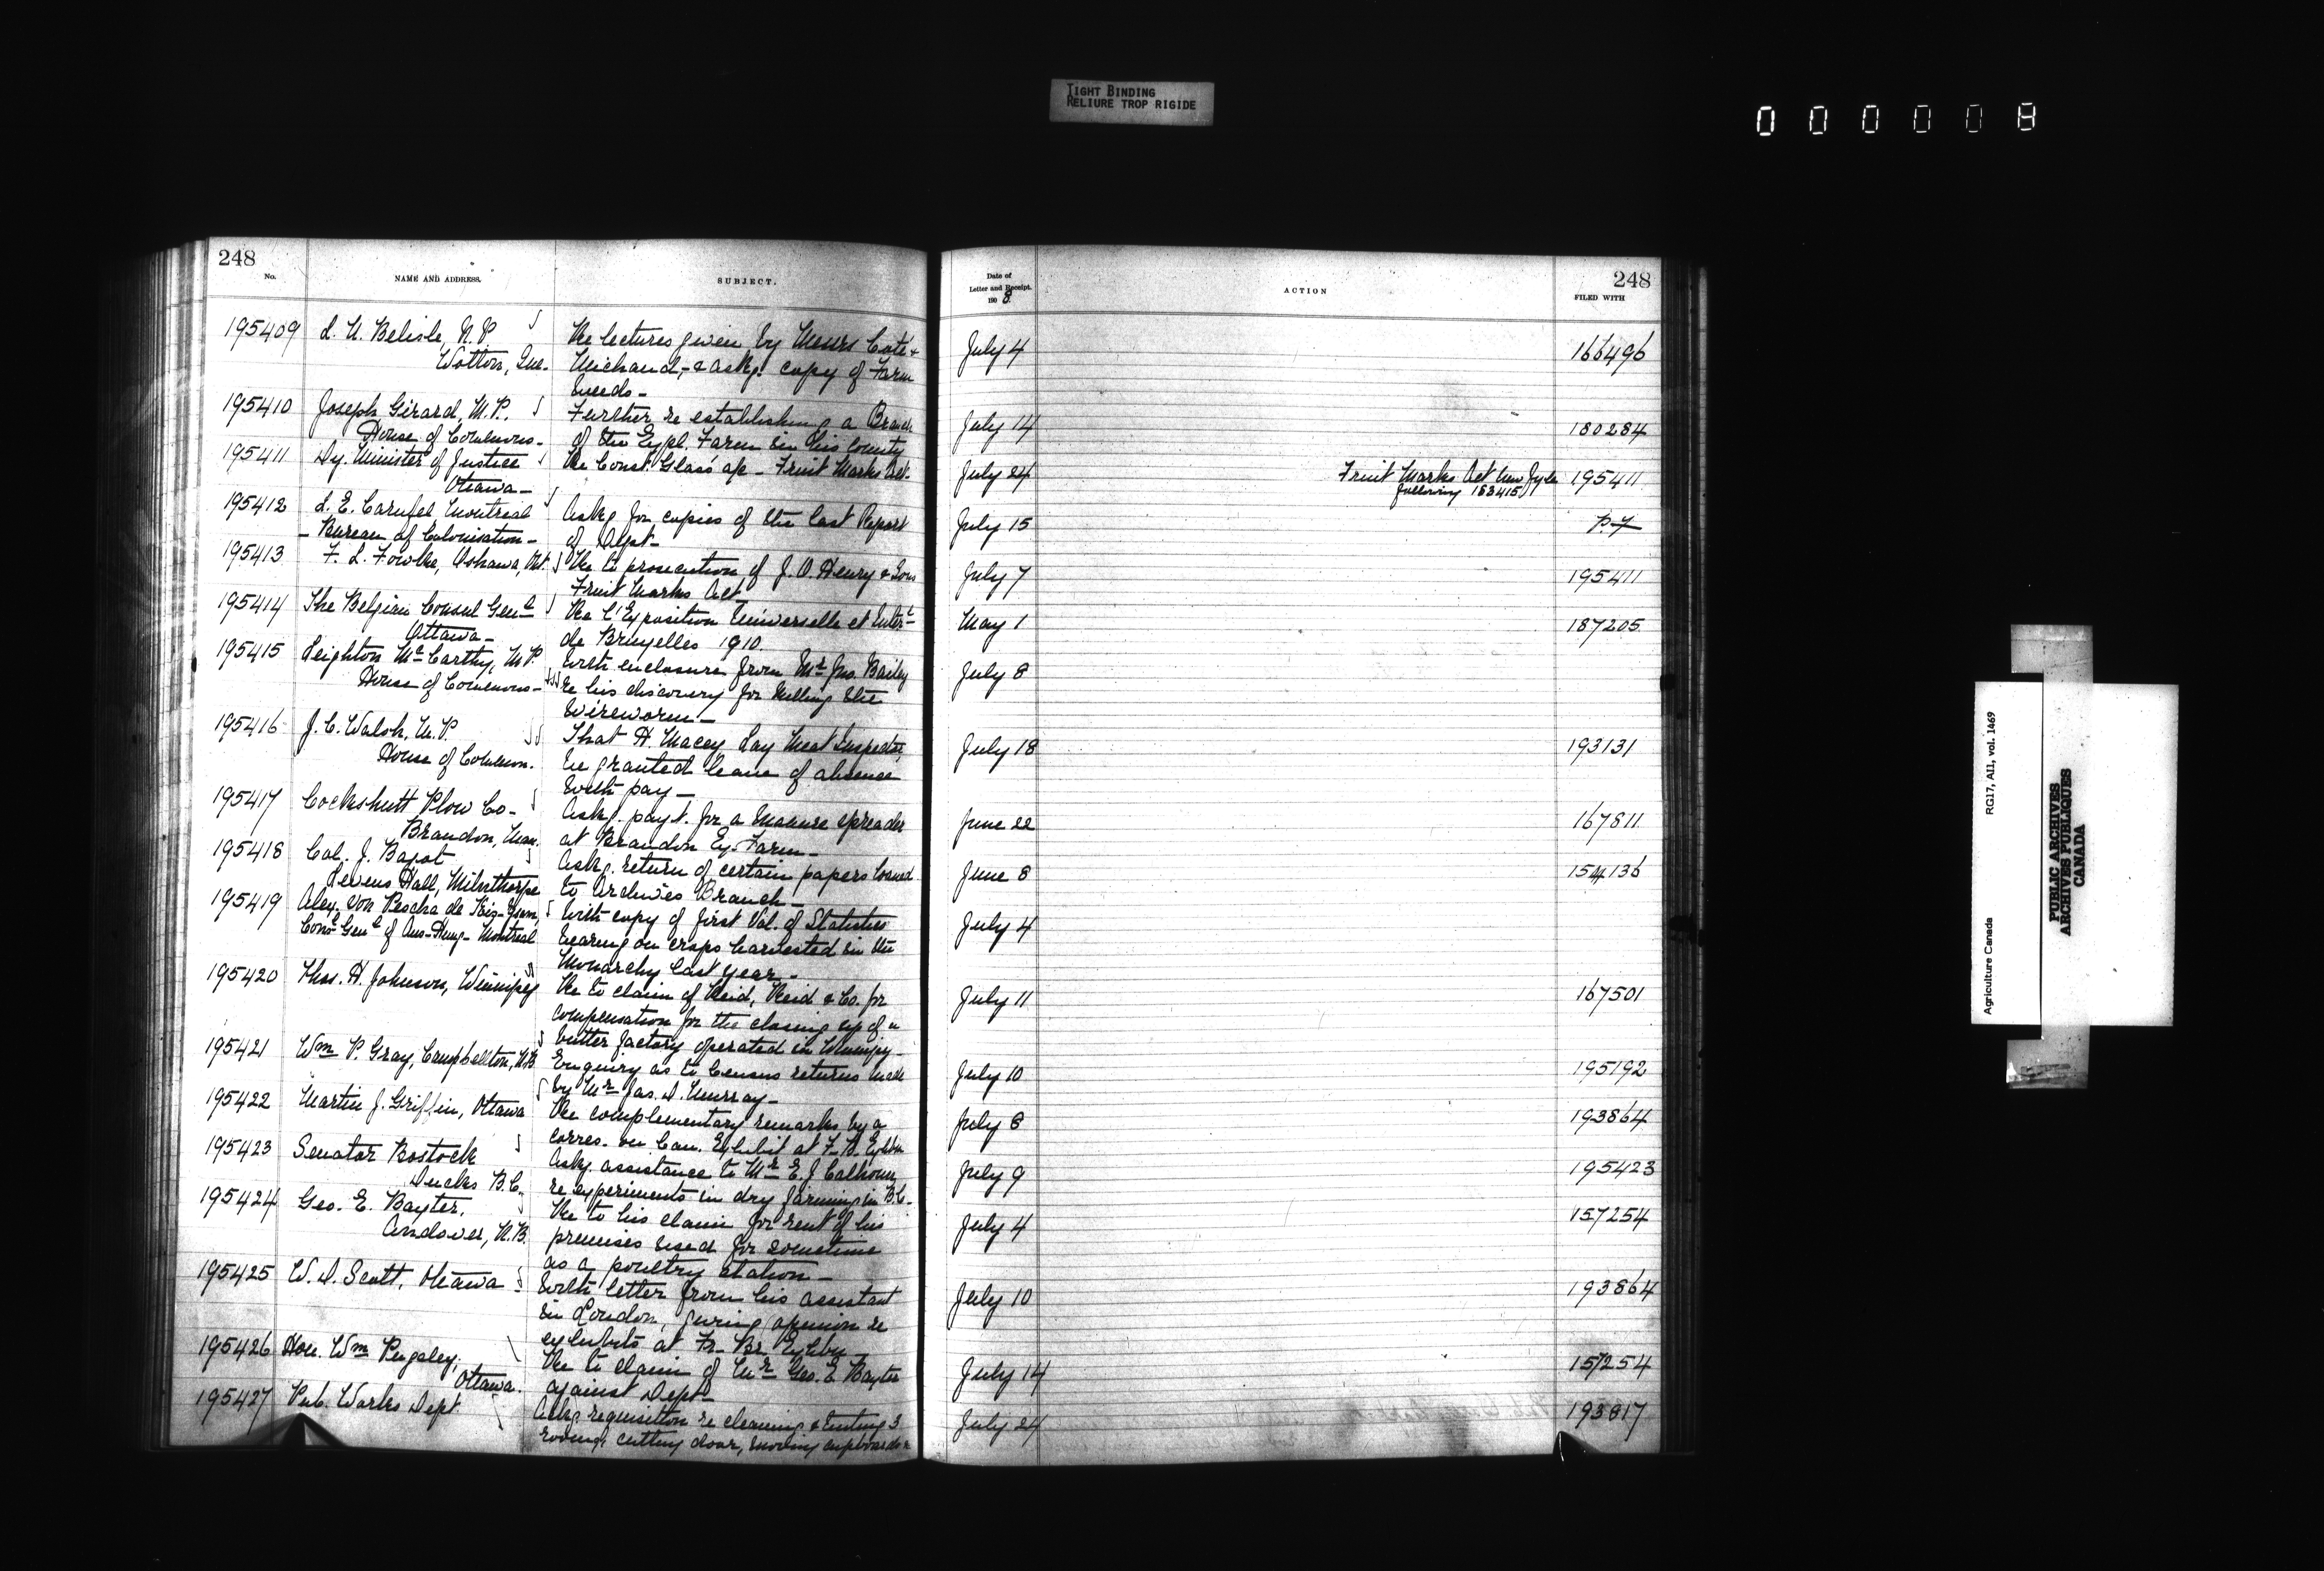 TIGHT BINDING
RELIURE TROP RIGIDE
000008
248
No.
NAME AND ADDRESS.
SUBJECT.
Date of
Letter and Receipt.
1908
ACTION
248
FILED WITH
195409 L. N. Belisle, N.P. Re lectures given by Messrs Coté & July 4 166496
Wotton, Que. Michaud, - & askg. copy of Farm
Weeds -
195410 Joseph Girard, M.P. Further re establishing a Branch July 14 180284
House of Commons - of the Expl. Farm in his county
195411 Dy. Minister of Justice Re Const. Glass a/c - Fruit Marks Act. July 24 Fruit Marks Act New Jyle 195411
Ottawa - following 183415
195412 L. E. Carufel Montreal Askg for copies of the last Report July 15 P.7
- Bureau of Colonisation - of Dept -
195413 F. L. Fowke, Oshawa, Ont. Re to prosecution of J. O. Henry & Sons July 7 195411
Fruit Marks Act
195414 The Belgian Consul Genl Re l'Exposition Universelle et Interl May 1 187205
Ottawa - de Bruxelles 1910.
195415 Leighton McCarthy, M.P. With enclosure from Mr Jno. Bailey July 8
House of Commons - re his discovery for killing the
Wireworm -
195416 J. C. Walsh, M.P. That H. Macey Lay Meat Inspector, July 18 193131
House of Common. be granted leave of absence
with pay -
195417 Cockshutt Plow Co - Askg. payt. for a manure spreader June 22 167811
Brandon, Man. at Brandon Ex. Farm -
195418 Col. J. Bagot Askg. return of certain papers loaned June 8 154136
Levens Hall, Milnthorpe to Archives Branch -
195419 Alex. von Pescha de Kis-Zsam, With copy of first Vol. of Statistics July 4
Consl Genl of Aus-Hung- Montreal bearing on crops harvested in the
Monarchy last year -
195420 Thos. H. Johnson, Winnipeg Re to claim of Reid, Reid & Co. for July 11 167501
compensation for the closing up of a
butter factory operated in Winnipeg -
195421 Wm P. Gray, Campbellton, N.B Enquiry as to Census returns made July 10 195192
by Mr Jas. D. Murray -
195422 Martin J. Griffin, Ottawa Re complementary remarks by a July 8 193864
corres. on Can. Exhibit at F-B. Exhbn
195423 Senator Bostock Askg. assistance to Mr E. J Calhoun, July 9 195423
Ducks B.C. re experiments in dry farming in B.C.
195424 Geo. E. Baxter, Re to his claim for rent of his July 4 157254
Andover, N.B. premises used for sometime
as a poultry station -
195425 W. D. Scott, Ottawa With letter from his assistant July 10 193864
in London, giving opinion re
exhibits at Fr- Br. Exhbn
195426 Hon. Wm Pugsley, Re to claim of Mr Geo. E Baxter July 14 157254
Ottawa. against Dept -
195427 Pub. Works Dept. Askg requisition re cleaning & tinting 3 July 24 193817
rooms, cutting door, moving cupboards &
Agriculture Canada
RG17, AII, vol. 1469
PUBLIC ARCHIVES
ARCHIVES PUBLIQUES
CANADA